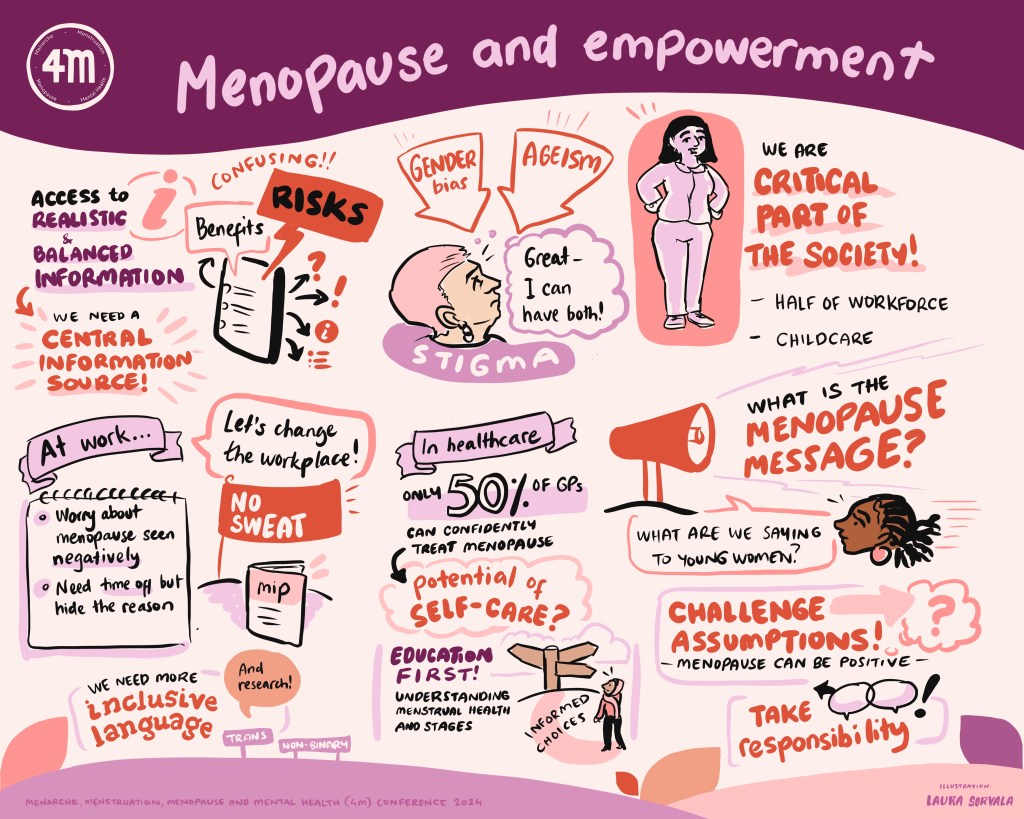 Menarche
Menstruation
4m
Menopause
Mental Health
Menopause and empowerment
ACCESS to
REALISTIC
&
BALANCED
INFORMATION
i
CONFUSING!!
Benefits
RISKS
?
!
i
WE NEED A
CENTRAL
INFORMATION
SOURCE!
GENDER
bias
AGEISM
Great-
I can
have both!
STIGMA
WE ARE
CRITICAL
PART OF
THE SOCIETY!
- HALF OF WORKFORCE
- CHILDCARE
At work...
Let's change
the workplace!
Worry about
menopause seen
negatively
Need time off but
hide the reason
NO
SWEAT
mip
WE NEED MORE
inclusive
language
And
research!
TRANS
NON-BINARY
In healthcare
ONLY 50% OF GPs
CAN CONFIDENTLY
TREAT MENOPAUSE
potential of
SELF-CARE?
EDUCATION
FIRST!
UNDERSTANDING
MENSTRUAL HEALTH
AND STAGES
INFORMED
CHOICES
WHAT IS THE
MENOPAUSE
MESSAGE?
WHAT ARE WE SAYING
TO YOUNG WOMEN?
CHALLENGE
ASSUMPTIONS!
?
- MENOPAUSE CAN BE POSITIVE -
TAKE
responsibility
!
MENARCHE, MENSTRUATION, MENOPAUSE AND MENTAL HEALTH (4M) CONFERENCE 2024
ILLUSTRATION:
LAURA SORVALA